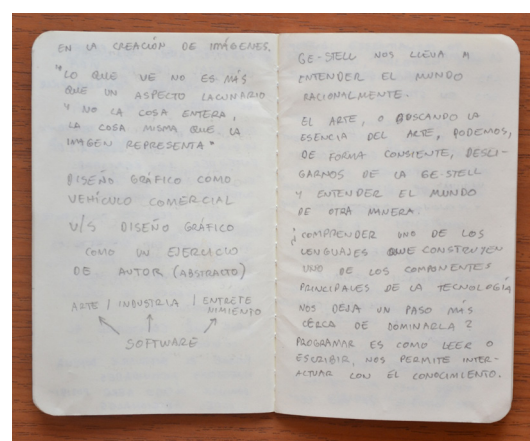 EN LA CREACIÓN DE IMÁGENES.
"LO QUE VE NO ES MÁS
QUE UN ASPECTO LACUNARIO
Y NO LA COSA ENTERA,
LA COSA MISMA QUE LA
IMAGEN REPRESENTA"
DISEÑO GRÁFICO COMO
VEHÍCULO COMERCIAL
V/S DISEÑO GRÁFICO
COMO UN EJERCICIO
DE AUTOR (ABSTRACTO)
ARTE / INDUSTRIA / ENTRETE
NIMIENTO
SOFTWARE
GE-STELL NOS LLEVA A
ENTENDER EL MUNDO
RACIONALMENTE.
EL ARTE, O BUSCANDO LA
ESENCIA DEL ARTE, PODEMOS,
DE FORMA CONSIENTE, DESLI-
GARNOS DE LA GE-STELL
Y ENTENDER EL MUNDO
DE OTRA MANERA.
¿COMPRENDER UNO DE LOS
LENGUAJES QUE CONSTRUYEN
UNO DE LOS COMPONENTES
PRINCIPALES DE LA TECNOLOGÍA
NOS DEJA UN PASO MÁS
CERCA DE DOMINARLA?
PROGRAMAR ES COMO LEER O
ESCRIBIR, NOS PERMITE INTER-
ACTUAR CON EL CONOCIMIENTO.